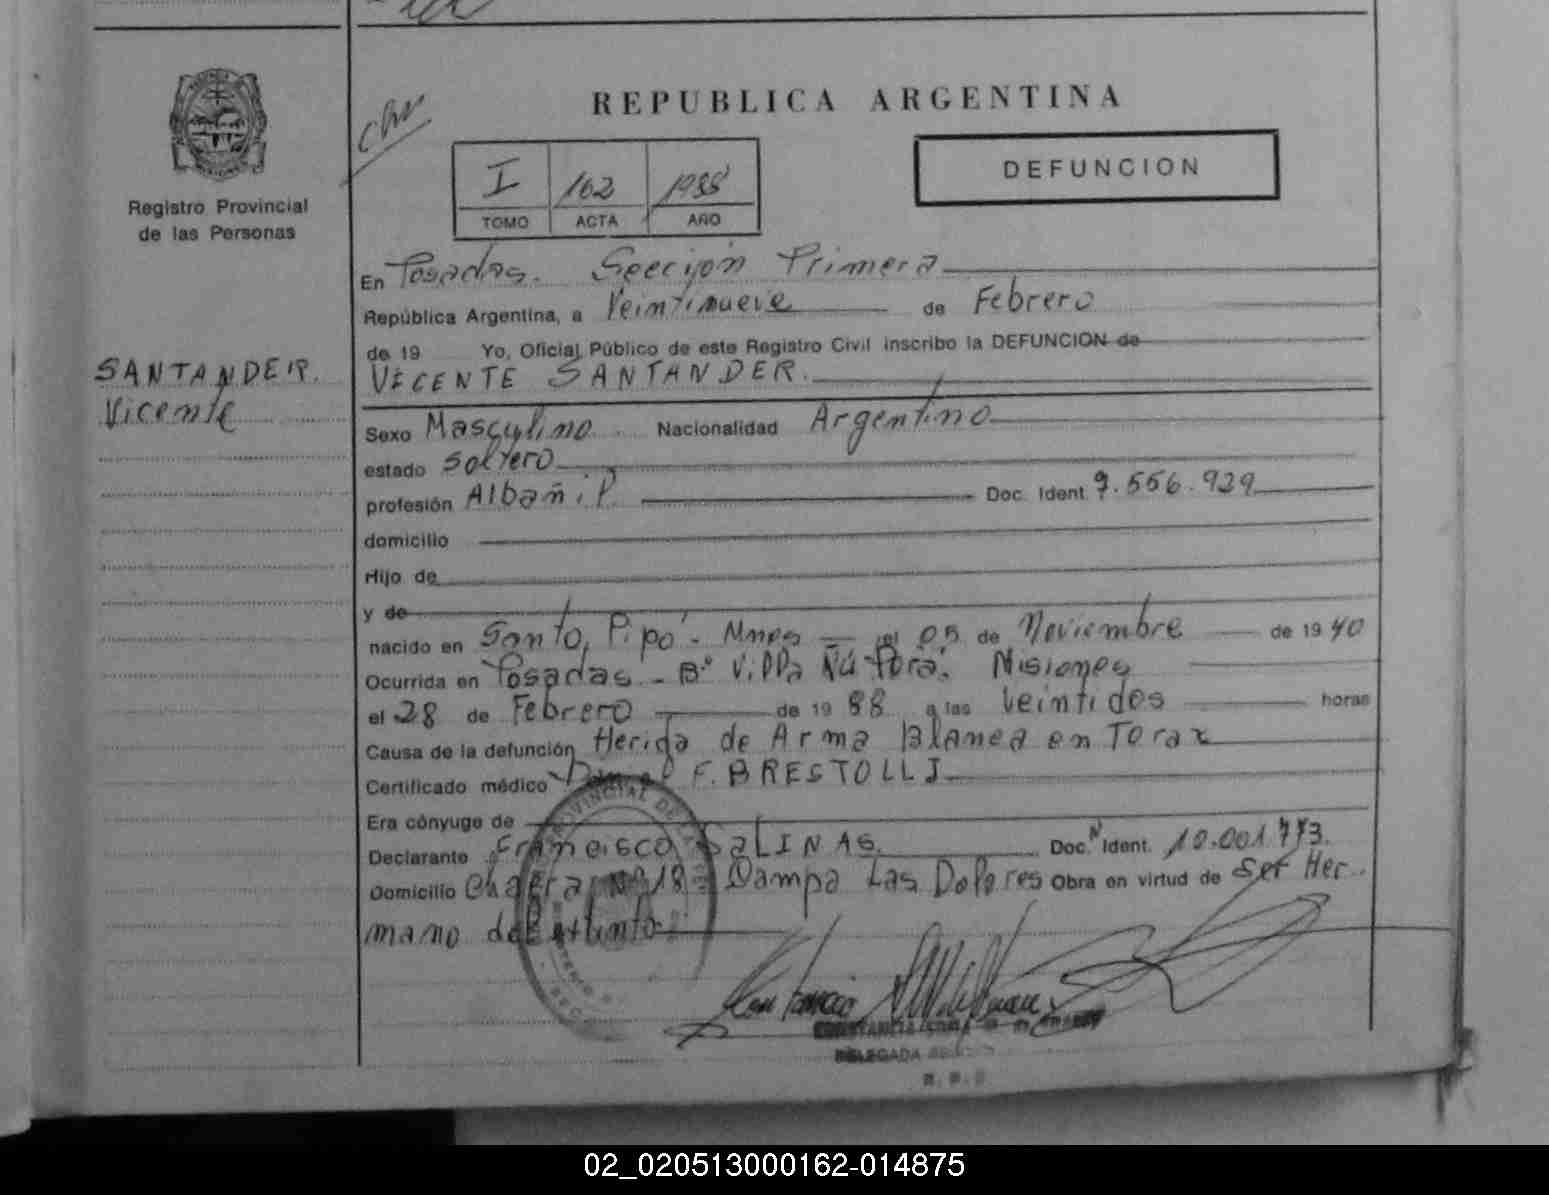 REPUBLICA ARGENTINA
Registro Provincial
de las Personas
I 162 1988
TOMO ACTA AÑO
DEFUNCION
En Posadas. Seccion Primera
República Argentina, a Veintinueve de Febrero
de 19 Yo, Oficial Público de este Registro Civil inscribo la DEFUNCION de
SANTANDER.
Vicente
VECENTE SANTANDER.
Sexo Masculino Nacionalidad Argentino
estado Soltero
profesión Albañil Doc. Ident. 7.556.929
domicilio
Hijo de
y de
nacido en Santo Pipó - Mnes el 05 de Noviembre de 1940
Ocurrida en Posadas - Bº Villa Ñú Porá. Misiones
el 28 de Febrero de 1988 a las Veintidos horas
Causa de la defunción Herida de Arma Blanca en Torax
Certificado médico F. BRESTOLLI
Era cónyuge de
Declarante Francisco SALINAS. Doc. Ident. 10.001.773.
Domicilio Chacra Nº 18 - Pampa Las Dolores Obra en virtud de Ser Her-
mano del extinto
DELEGADA
02_020513000162-014875